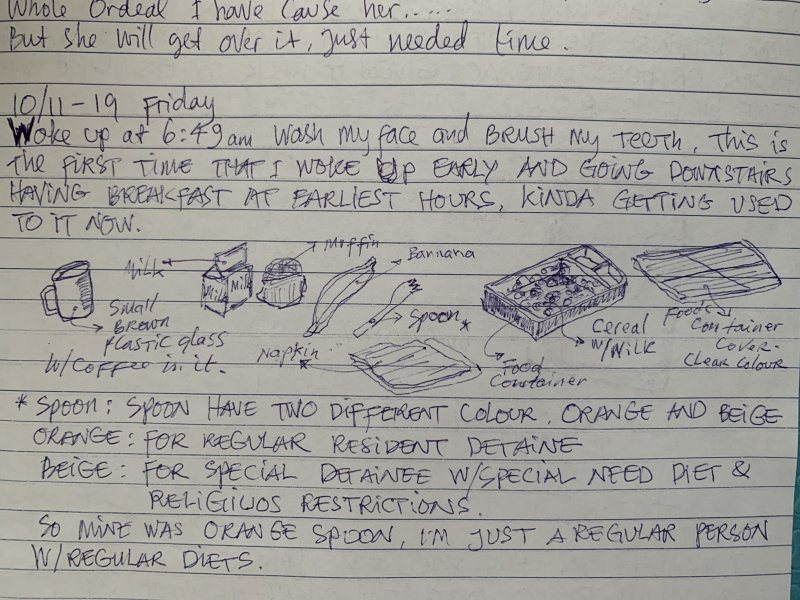 Whole Ordeal I have Cause her......
But she will get over it, Just needed time.
10/11-19 Friday
Woke up at 6:49am Wash my face and BRUSH MY TEETH, THIS IS
THE FIRST TIME THAT I WOKE UP EARLY AND GOING DOWNSTAIRS
HAVING BREAKFAST AT EARLIEST HOURS, KINDA GETTING USED
TO IT NOW.
Milk
Milk
Milk
Moffin
Bannana
Small
Brown
Plastic glass
W/Coffee in it.
Spoon*
Napkin
Food
Countainer
Cereal
W/Milk
Food
Container
Cover-
Clear Colour
* SPOON: SPOON HAVE TWO DIFFERENT COLOUR, ORANGE AND BEIGE
ORANGE: FOR REGULAR RESIDENT DETAINE
BEIGE: FOR SPECIAL DETAINEE W/SPECIAL NEED DIET &
RELIGIUOS RESTRICTIONS.
SO MINE WAS ORANGE SPOON, I'M JUST A REGULAR PERSON
W/REGULAR DIETS.